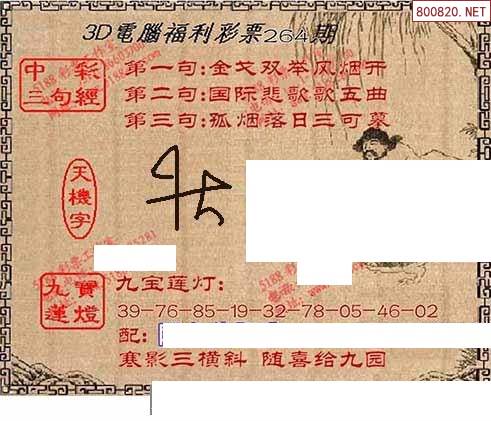 800820.NET
3D電腦福利彩票264期
中彩
三句經
第一句:金戈双举风烟开
第二句:国际悲歌歌五曲
第三句:孤烟落日三可墓
天機字
九寶
蓮燈
九宝莲灯:
39-76-85-19-32-78-05-46-02
配:
寒影三横斜 随喜给九园